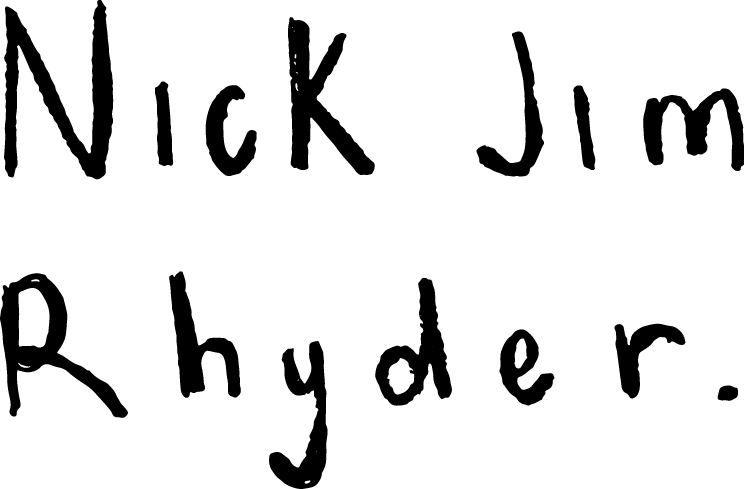 Nick Jim
Rhyder.